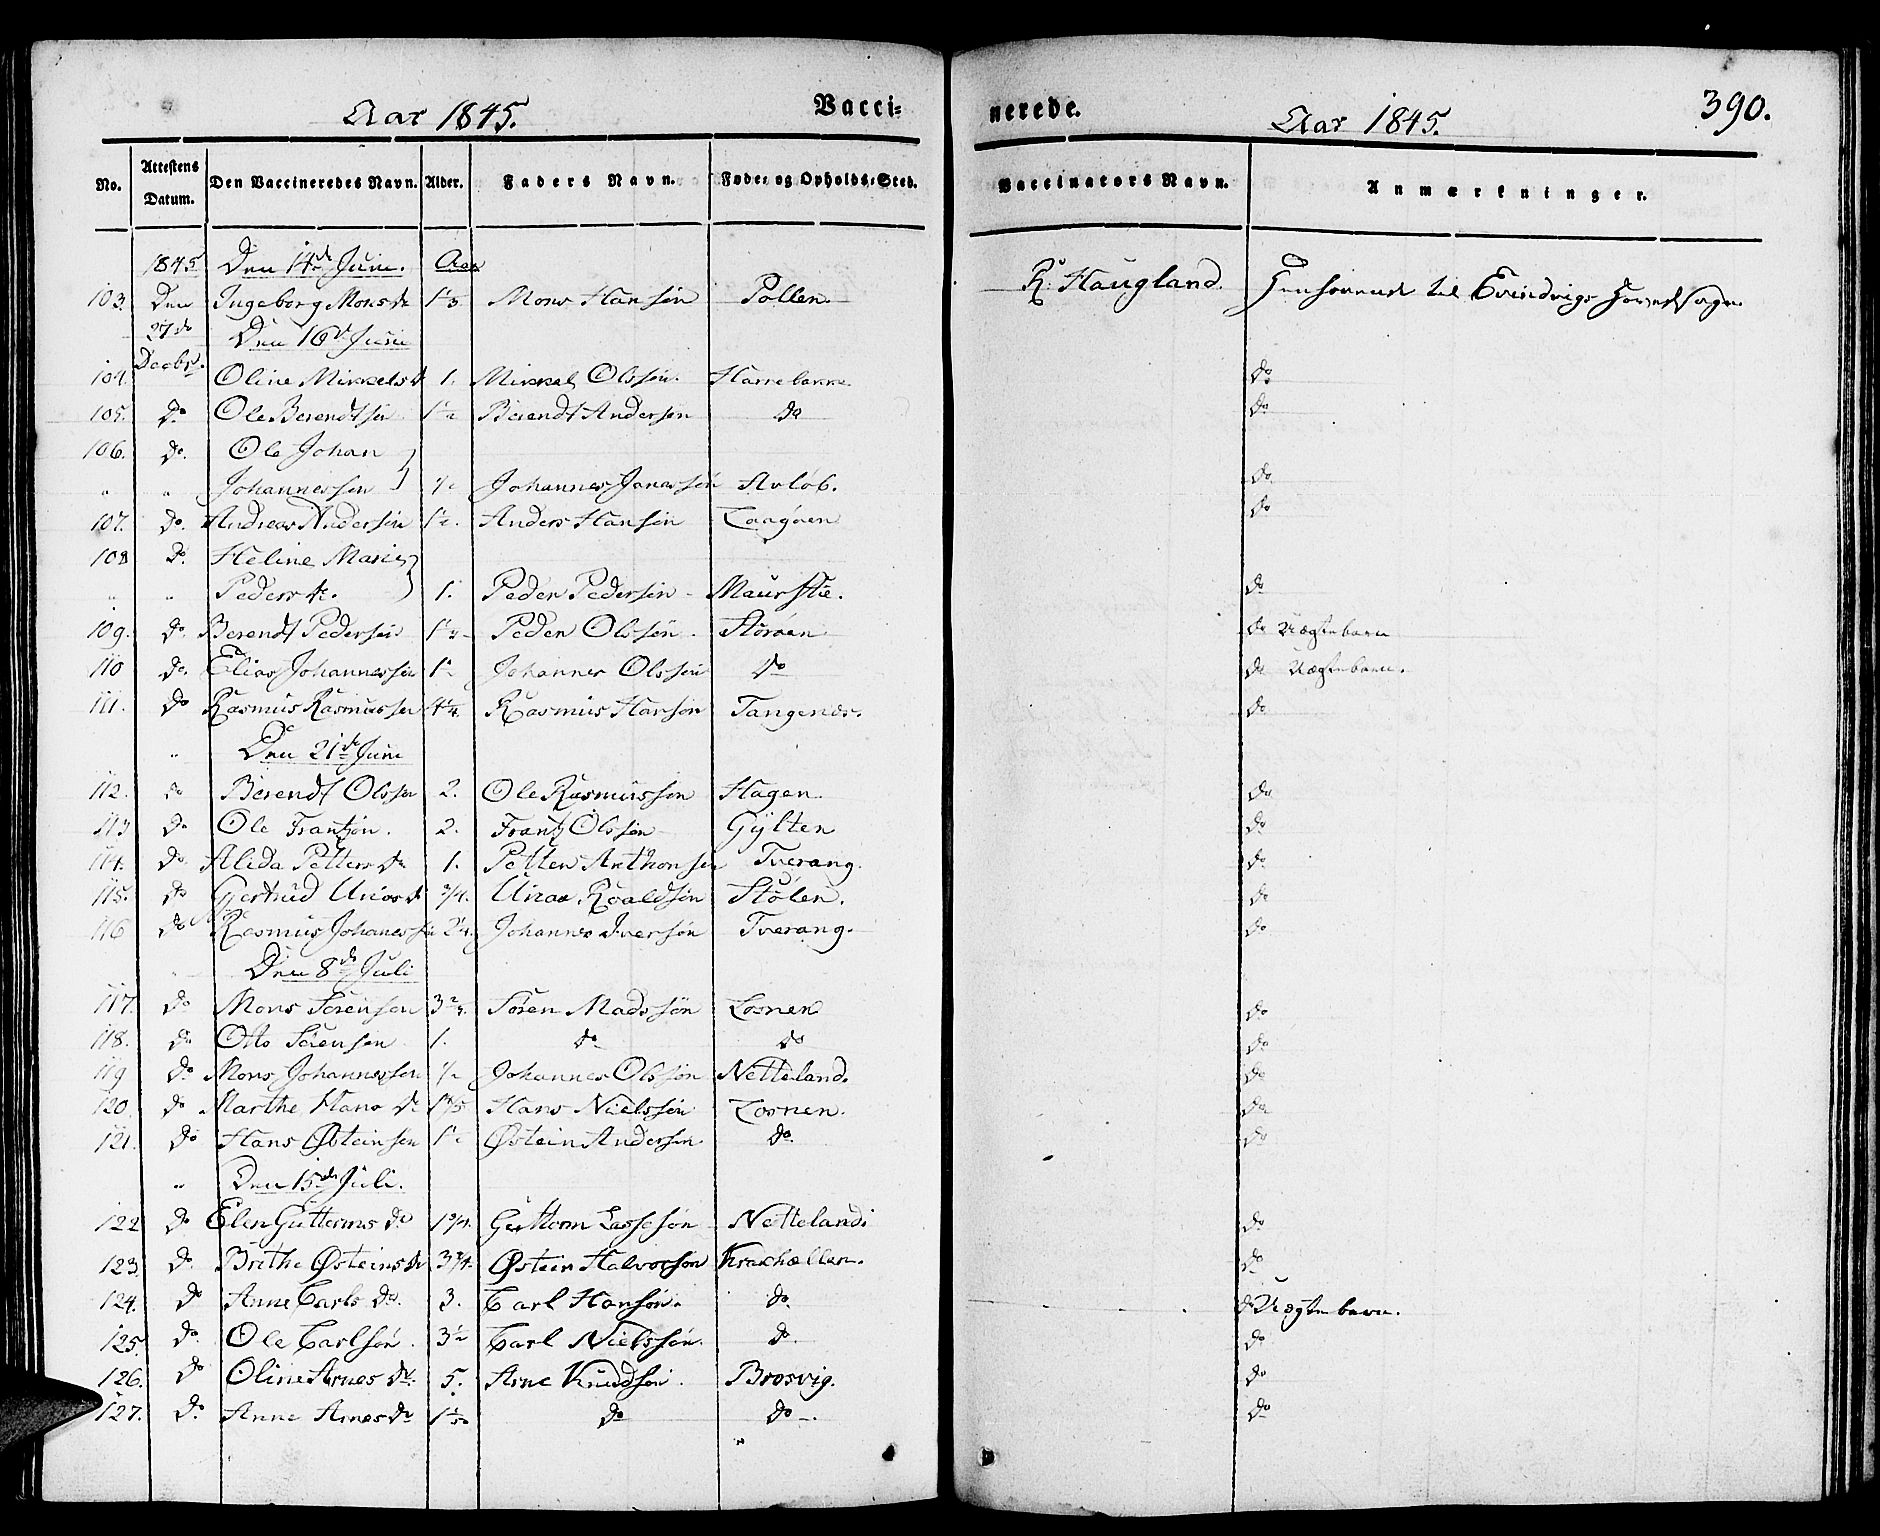 Aar 1845. Vacci=
nerede. Aar 1845. 390.
No. Attestens Datum. Den Vaccineredes Navn. Alder. Faders Navn. Føde= og Opholds=Sted. Vaccinators Navn. Anmærkninger.
1845 Den 14de Juni. Aar
103. Den Ingeborg Monsdr Mons Hansøn Pollen. R. Haugland Henhørende til Evindvigs Hovedsogn
27de Den 16de Juni
104. Decbr. Oline Mikkelsdr 1. Mikkel Olssøn. do
105. do Ole Berendtsøn 1½ Berendt Andersøn do do
106. do. Ole Johan
" " Johannessøn ½ Johannes Janessøn Avløb. do
107. do. Andreas Andersøn 1½. Anders Hansøn do
108 do. Heline Marie
" " Pedersdr. 1. Peder Pedersøn Maurstie. do
109. do Berendt Pedersøn Peder Olssøn Storøen do Uægte barn
110 do. Elias Johannessøn Johannes Olssøn do do Uægte barn.
111. do Rasmus Rasmussøn 4¼. Rasmus Hansøn Tangenes. do
" Den 21de Juni
112. do Berendt Olssøn 2. Ole Rasmussøn Hagen do
113 do Ole Frantzøn. 2. Frantz Olssøn Gÿlten do
114. do Alida Pettersdr 1. Petter Anthonsøn Tverang. do
115. do Gertrud Unasdr ¾. Unas Roaldsøn Stølen. do
116 do Rasmus Johannessøn 2¼. Johannes Iversøn Tverang. do
" Den 8de Juli
117. do Mons Sørensøn Søren Madssøn Losnen do
118. do Otto Sørensøn 1. do do do
119 do Mons Johannessøn ½ Johannes Olssøn Netteland. do
120. do Marthe Hansdr Hans Nielssøn Losnen. do
121. do Hans Østeinsøn 1½ Østein Andersøn do. do
" Den 15de Juli.
122 do Elen Guttormsdr 1¾. Guttorm Lassesøn Netteland. do
123. do. Brithe Østeinsdr 3¾. Østein Halvorsøn Krakhællen. do
124. do Anne Carlsdr. 3. Carl Hansøn. do. do Uægte barn.
125. do. Ole Carlsøn. 3½ Carl Nielssøn. do. do
126. do Oline Arnesdr. 5. Arne Knudsøn. Brosvig. do
127. do. Anne Arnesdr do do. do